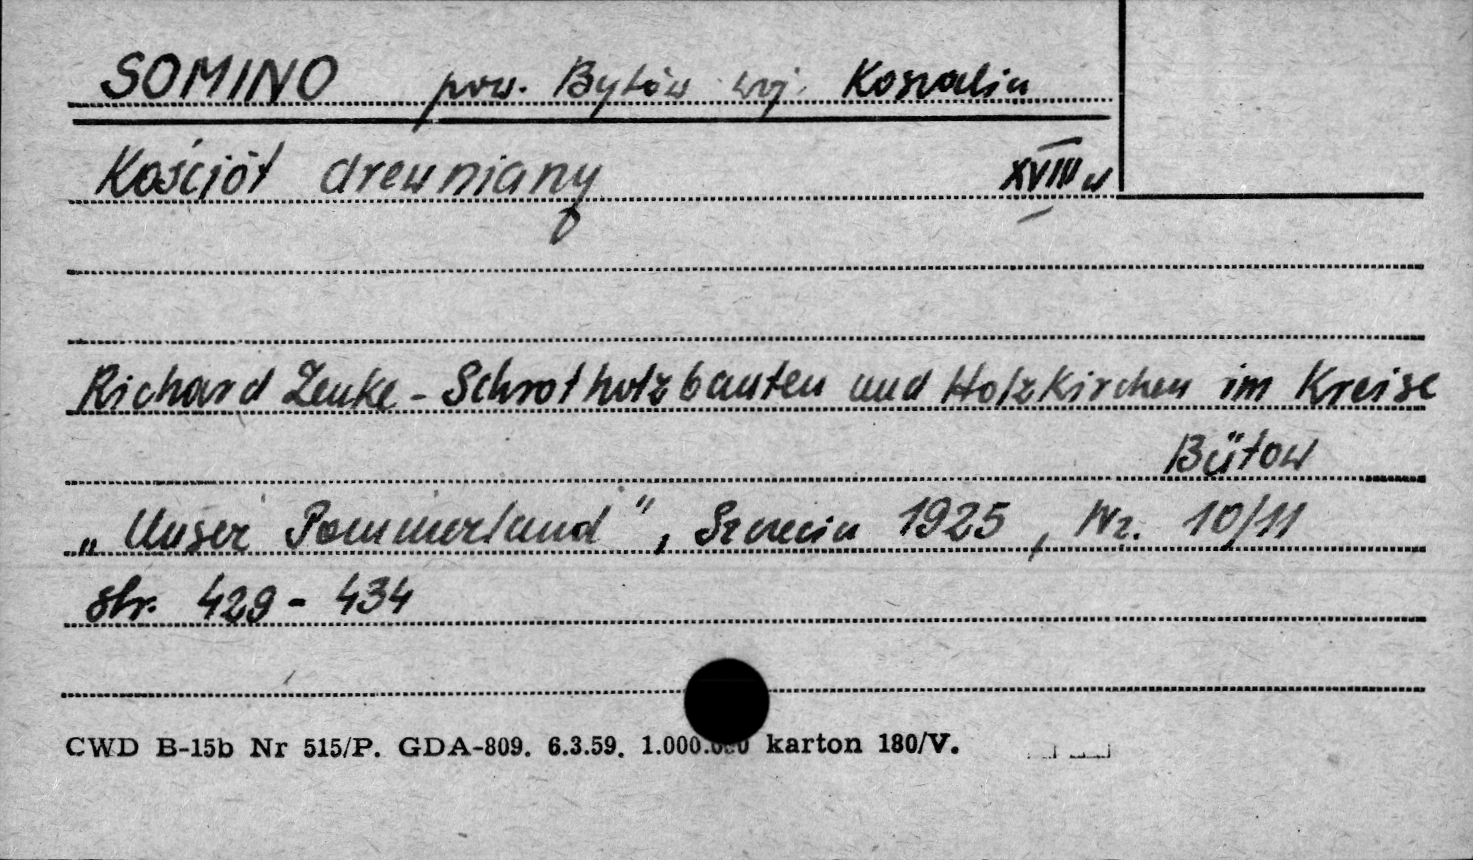 SOMINO pow. Bytów woj. Koszalin
Kościół drewniany XVIII w
Richard Zenke - Schrotholzbauten und Holzkirchen im Kreise
Bütow
„Unser Pommerland", Szczecin 1925, Nr. 10/11
str. 429 - 434
CWD B-15b Nr 515/P. GDA-809. 6.3.59. 1.000.000 karton 180/V.